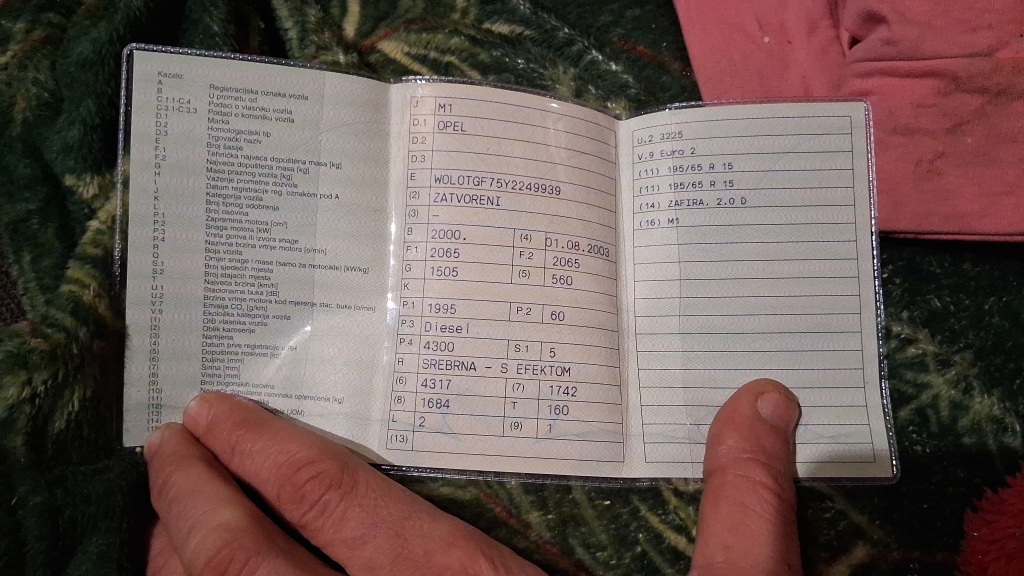 Kazalo:
A Registracijska oznaka vozila
B U prometu od
C.1.1-C.4 Podaci o vlasniku vozila
C.3.1-C.3.3 Podaci o korisniku vozila
D.1 Marka
D.2 Homologacijski tip
D.3 Trgovački naziv
E Broj šasije
F.1 Tehnička najveća dopuštena masa [kg]
F.2 Najveća dopuštena masa [kg]
G Masa praznog vozila [kg]
H Važenje prometne dozvole
I Datum registracije reg. oznakom pod A
J Kategorija vozila
K Broj tipnog odobrenja
L Broj osovina
P.1 Zapremina motora [cm³]
P.2 Snaga motora [kW]
P.3 Vrsta goriva ili izvora snage
P.4 Nazivna brzina vrtnje motora [o/min]
R Boja vozila
Q Omjer snage i mase (samo za motocikle) [kW/kg]
S.1 Broj sjedećih mjesta
S.2 Broj stajaćih mjesta
T Najveća brzina [km/h]
U.1 Stacionarna buka [dB]
U.2 Brzina vrtnje motora kod mjerenja stac. buke [o/min]
V.7 Emisija CO₂ [g/km]
V.9 Ekološka kategorija vozila
(1) OIB vlasnika vozila
(2) Oblik karoserije
(3) Namjena
(4) Datum prve registracije u RH
(5) Dopuštena nosivost [kg]
(6) Duljina [mm]
(7) Širina [mm]
(8) Visina [mm]
(9) Broj pogonskih osovina
(10) Najveća dopuštena osovinska opterećenja [kg]
(11)
(12)
(13)
(14)
J M1
D.1 OPEL
D.2
D.3
E WOLOTGF75Y2249939
(2) ZATVORENI
(3) –
B 2000. (4) 01.08.2003
F.1 2065 F.2 2065
G 1505 (5) 560
K
P.1 1995 P.2 60
P.3 Diesel
P.4 4300 S.1 5
R SREBRNA – S EFEKTOM
(6) 4317 (7) 1742
(8) 1684 T 160
L 2 (9) 1
(13)
U.2 3225
V.9 Euro 2
(11) 195/65 R 15
(11) 195/65 R 15
(14) ZAFIRA, 2.0 D
(16) M1